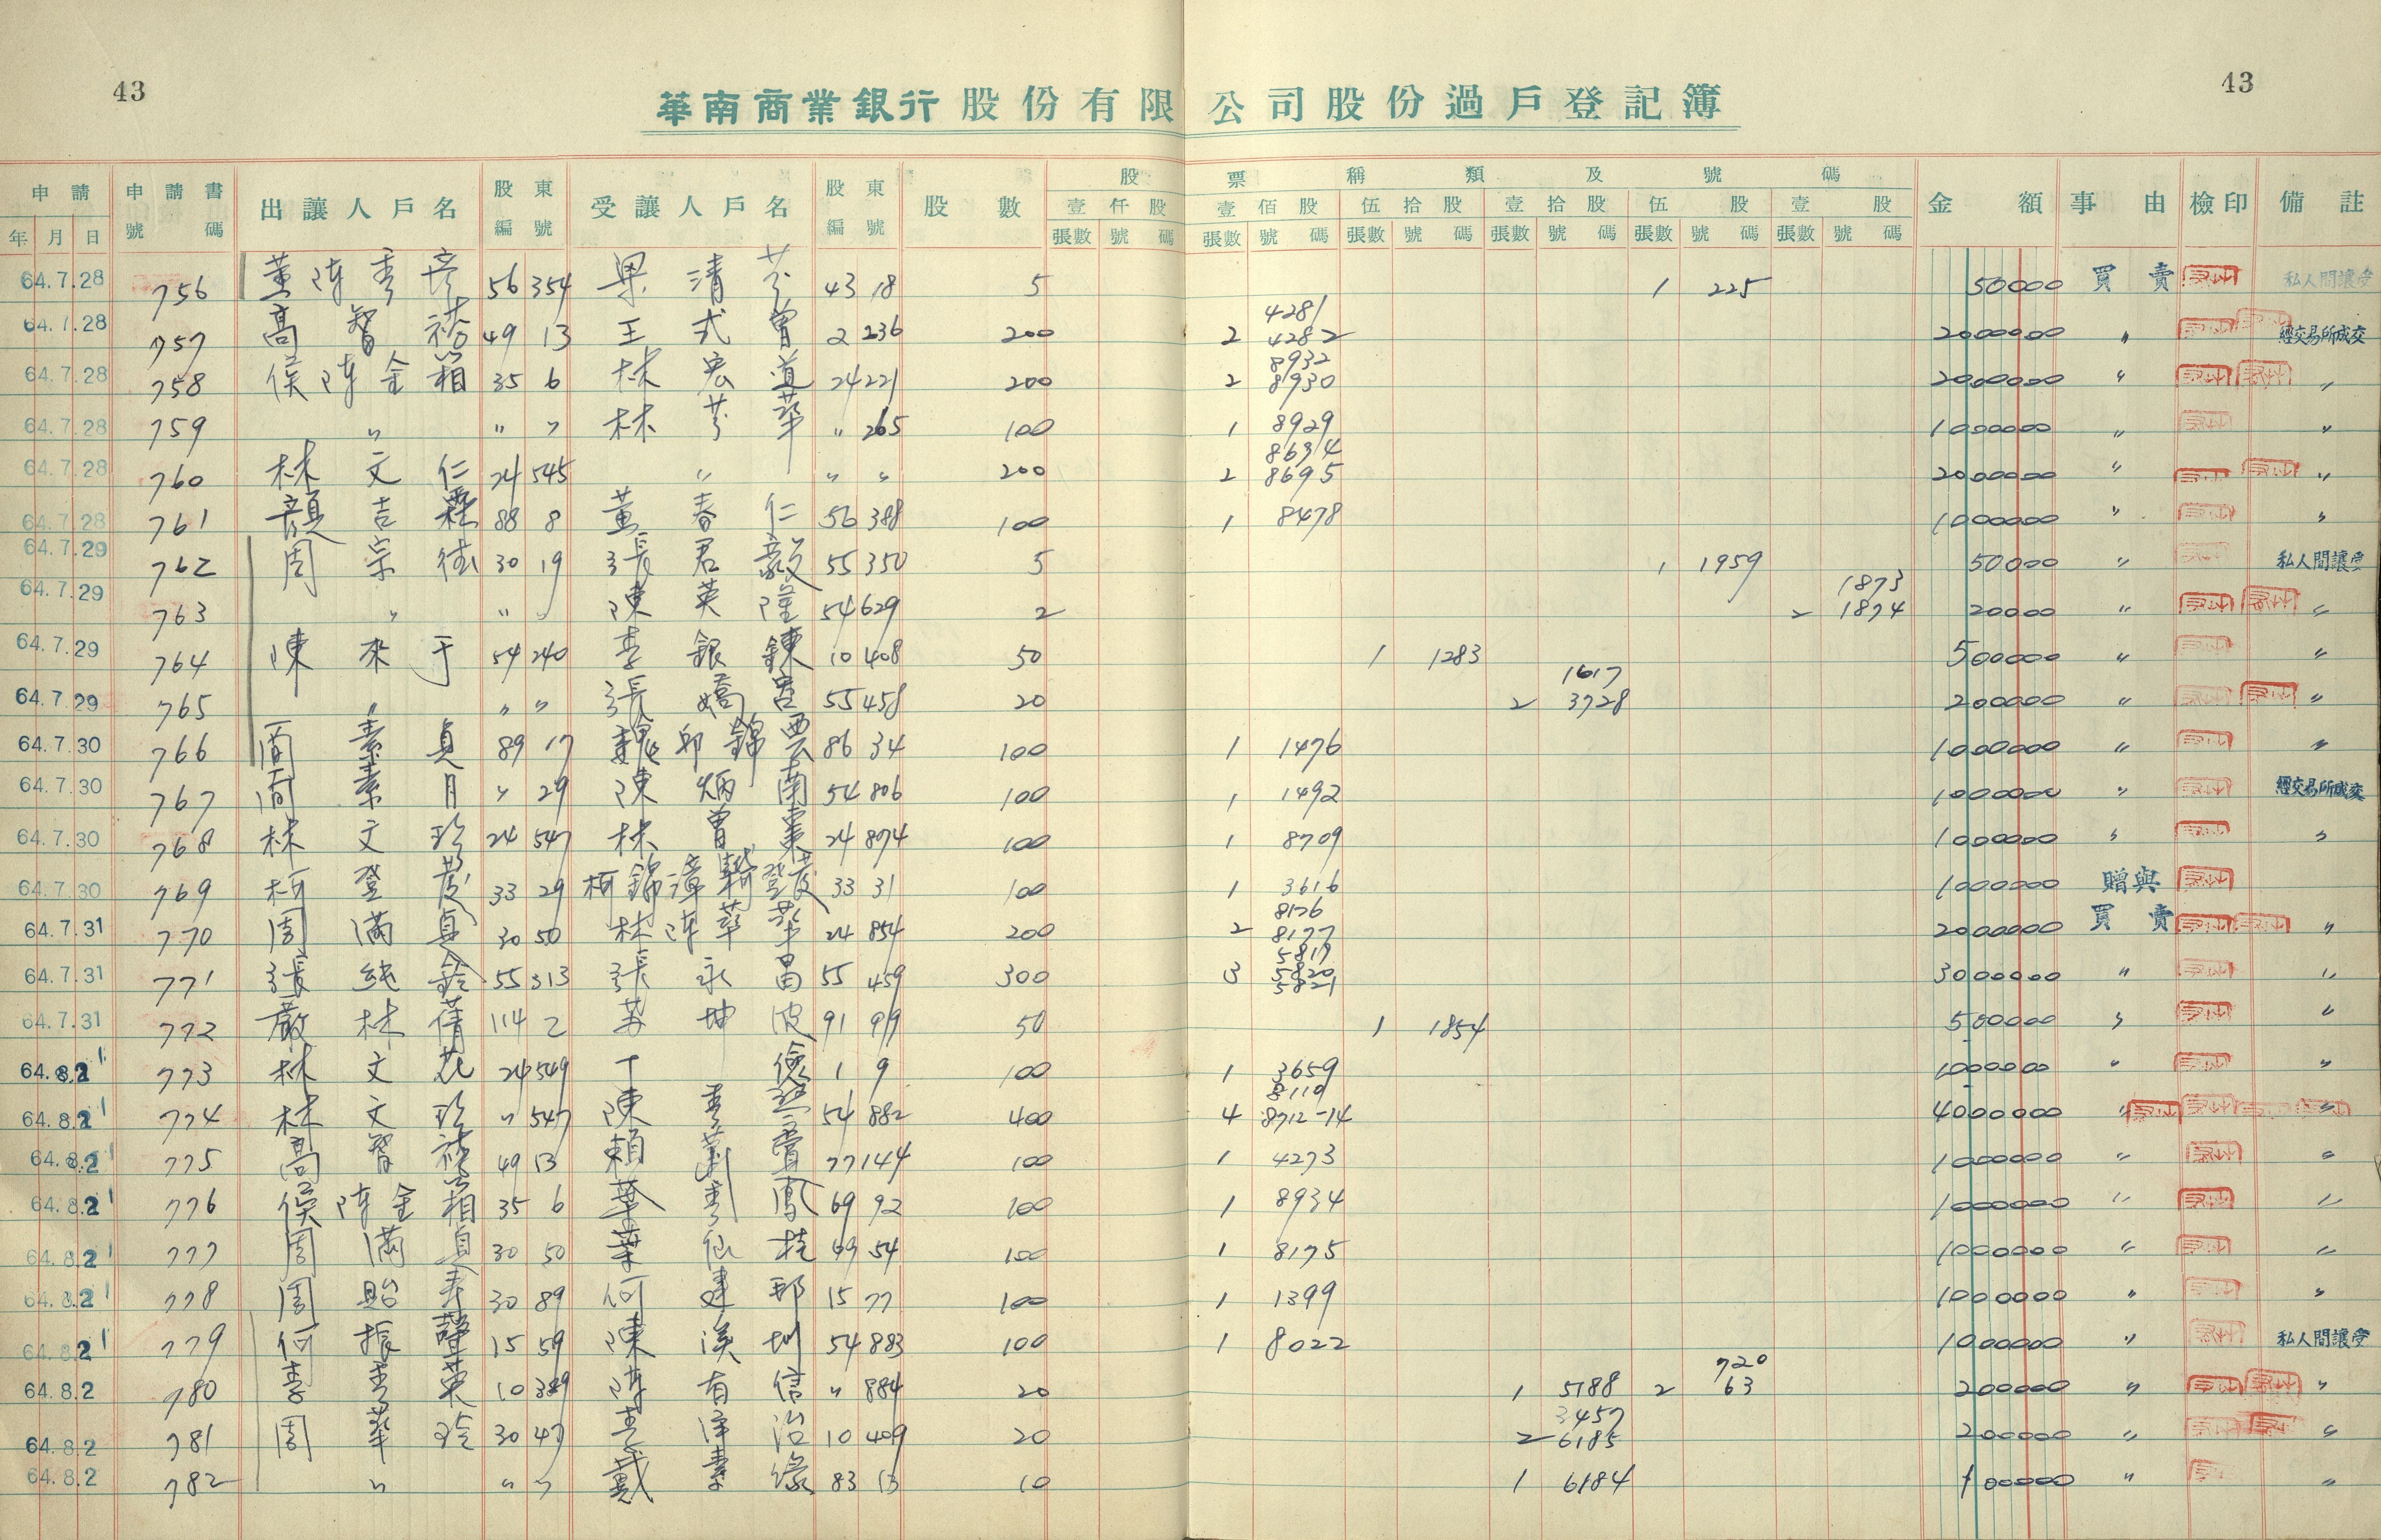 43
43
華南商業銀行股份有限公司股份過戶登記簿
申請 申請書 出讓人戶名 股東 受讓人戶名 股東 股數 股票種類及號碼 金額 事由 檢印 備註
年 月 日 號碼 編號 編號 壹仟股 壹佰股 伍拾股 壹拾股 伍股 壹股
張數 號碼 張數 號碼 張數 號碼 張數 號碼 張數 號碼 張數 號碼
64.7.28 756 董陳秀 56 354 清芬 43 18 5 1 225 50000 買賣 私人間讓受
4281
64.7.28 757 高智 49 13 王式曾 2 236 200 2 4282 2000000 〃 經交易所成交
8932
64.7.28 758 侯陳金箱 35 6 林宏道 24 221 200 2 8930 2000000 〃 〃
64.7.28 759 〃 〃 〃 林芬華 〃 265 100 1 8929 1000000 〃 〃
8694
64.7.28 760 林文仁 24 545 〃 〃 〃 200 2 8695 2000000 〃 〃
64.7.28 761 顏吉霖 88 8 董春仁 56 388 100 1 8478 1000000 〃 〃
64.7.29 762 周宗 30 19 張君毅 55 350 5 1 1959 50000 〃 私人間讓受
1873
64.7.29 763 〃 〃 〃 陳英隆 54 629 2 2 1874 20000 〃 〃
64.7.29 764 陳來于 54 240 李銀鍊 10 408 50 1 1283 500000 〃 〃
1617
64.7.29 765 〃 〃 〃 張嬌 55 458 20 2 3728 200000 〃 〃
64.7.30 766 簡素貞 89 17 魏邱錦雲 86 34 100 1 1476 1000000 〃 〃
64.7.30 767 簡素月 〃 29 陳炳南 54 806 100 1 1492 1000000 〃 經交易所成交
64.7.30 768 林文珍 24 547 林曾 24 874 100 1 8709 1000000 〃 〃
64.7.30 769 柯登 33 29 柯錦漳 33 31 100 1 3616 1000000 贈與
8176
64.7.31 770 周滿貞 30 50 林陳華 24 854 200 2 8177 2000000 買賣 〃
5819
64.7.31 771 張純鈴 55 313 張永昌 55 459 300 3 5820 3000000 〃 〃
5821
64.7.31 772 嚴林蒨 114 2 坤波 91 99 50 1 1854 500000 〃 〃
64.8.1 773 林文花 24 549 丁儉 1 9 100 1 3659 1000000 〃 〃
8110
64.8.1 774 林文珍 〃 547 陳秀 54 882 400 4 8712-14 4000000 〃 〃
64.8.1 775 高智 49 13 賴劉 77 144 100 1 4273 1000000 〃 〃
64.8.1 776 侯陳金箱 35 6 葉秀鳳 69 92 100 1 8934 1000000 〃 〃
64.8.1 777 周滿貞 30 50 葉仙桂 69 54 100 1 8175 1000000 〃 〃
64.8.1 778 周貽春 30 89 何建邦 15 77 100 1 1399 1000000 〃 〃
64.8.1 779 何振聲 15 59 陳溪圳 54 883 100 1 8022 1000000 〃 私人間讓受
720
64.8.2 780 李秀英 10 389 陳有信 〃 884 20 1 5188 2 63 200000 〃 〃
3457
64.8.2 781 周華玲 30 47 李治 10 409 20 2 6185 200000 〃 〃
64.8.2 782 〃 〃 〃 戴素緣 83 13 10 1 6184 100000 〃 〃